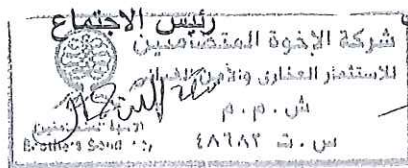 رئيس الاجتماع
شركة الإخوة المتضامنين
للاستثمار العقارى والأمن الغذائى
ش . م . م
س . ت ٤٨٦٨٢
Brother's